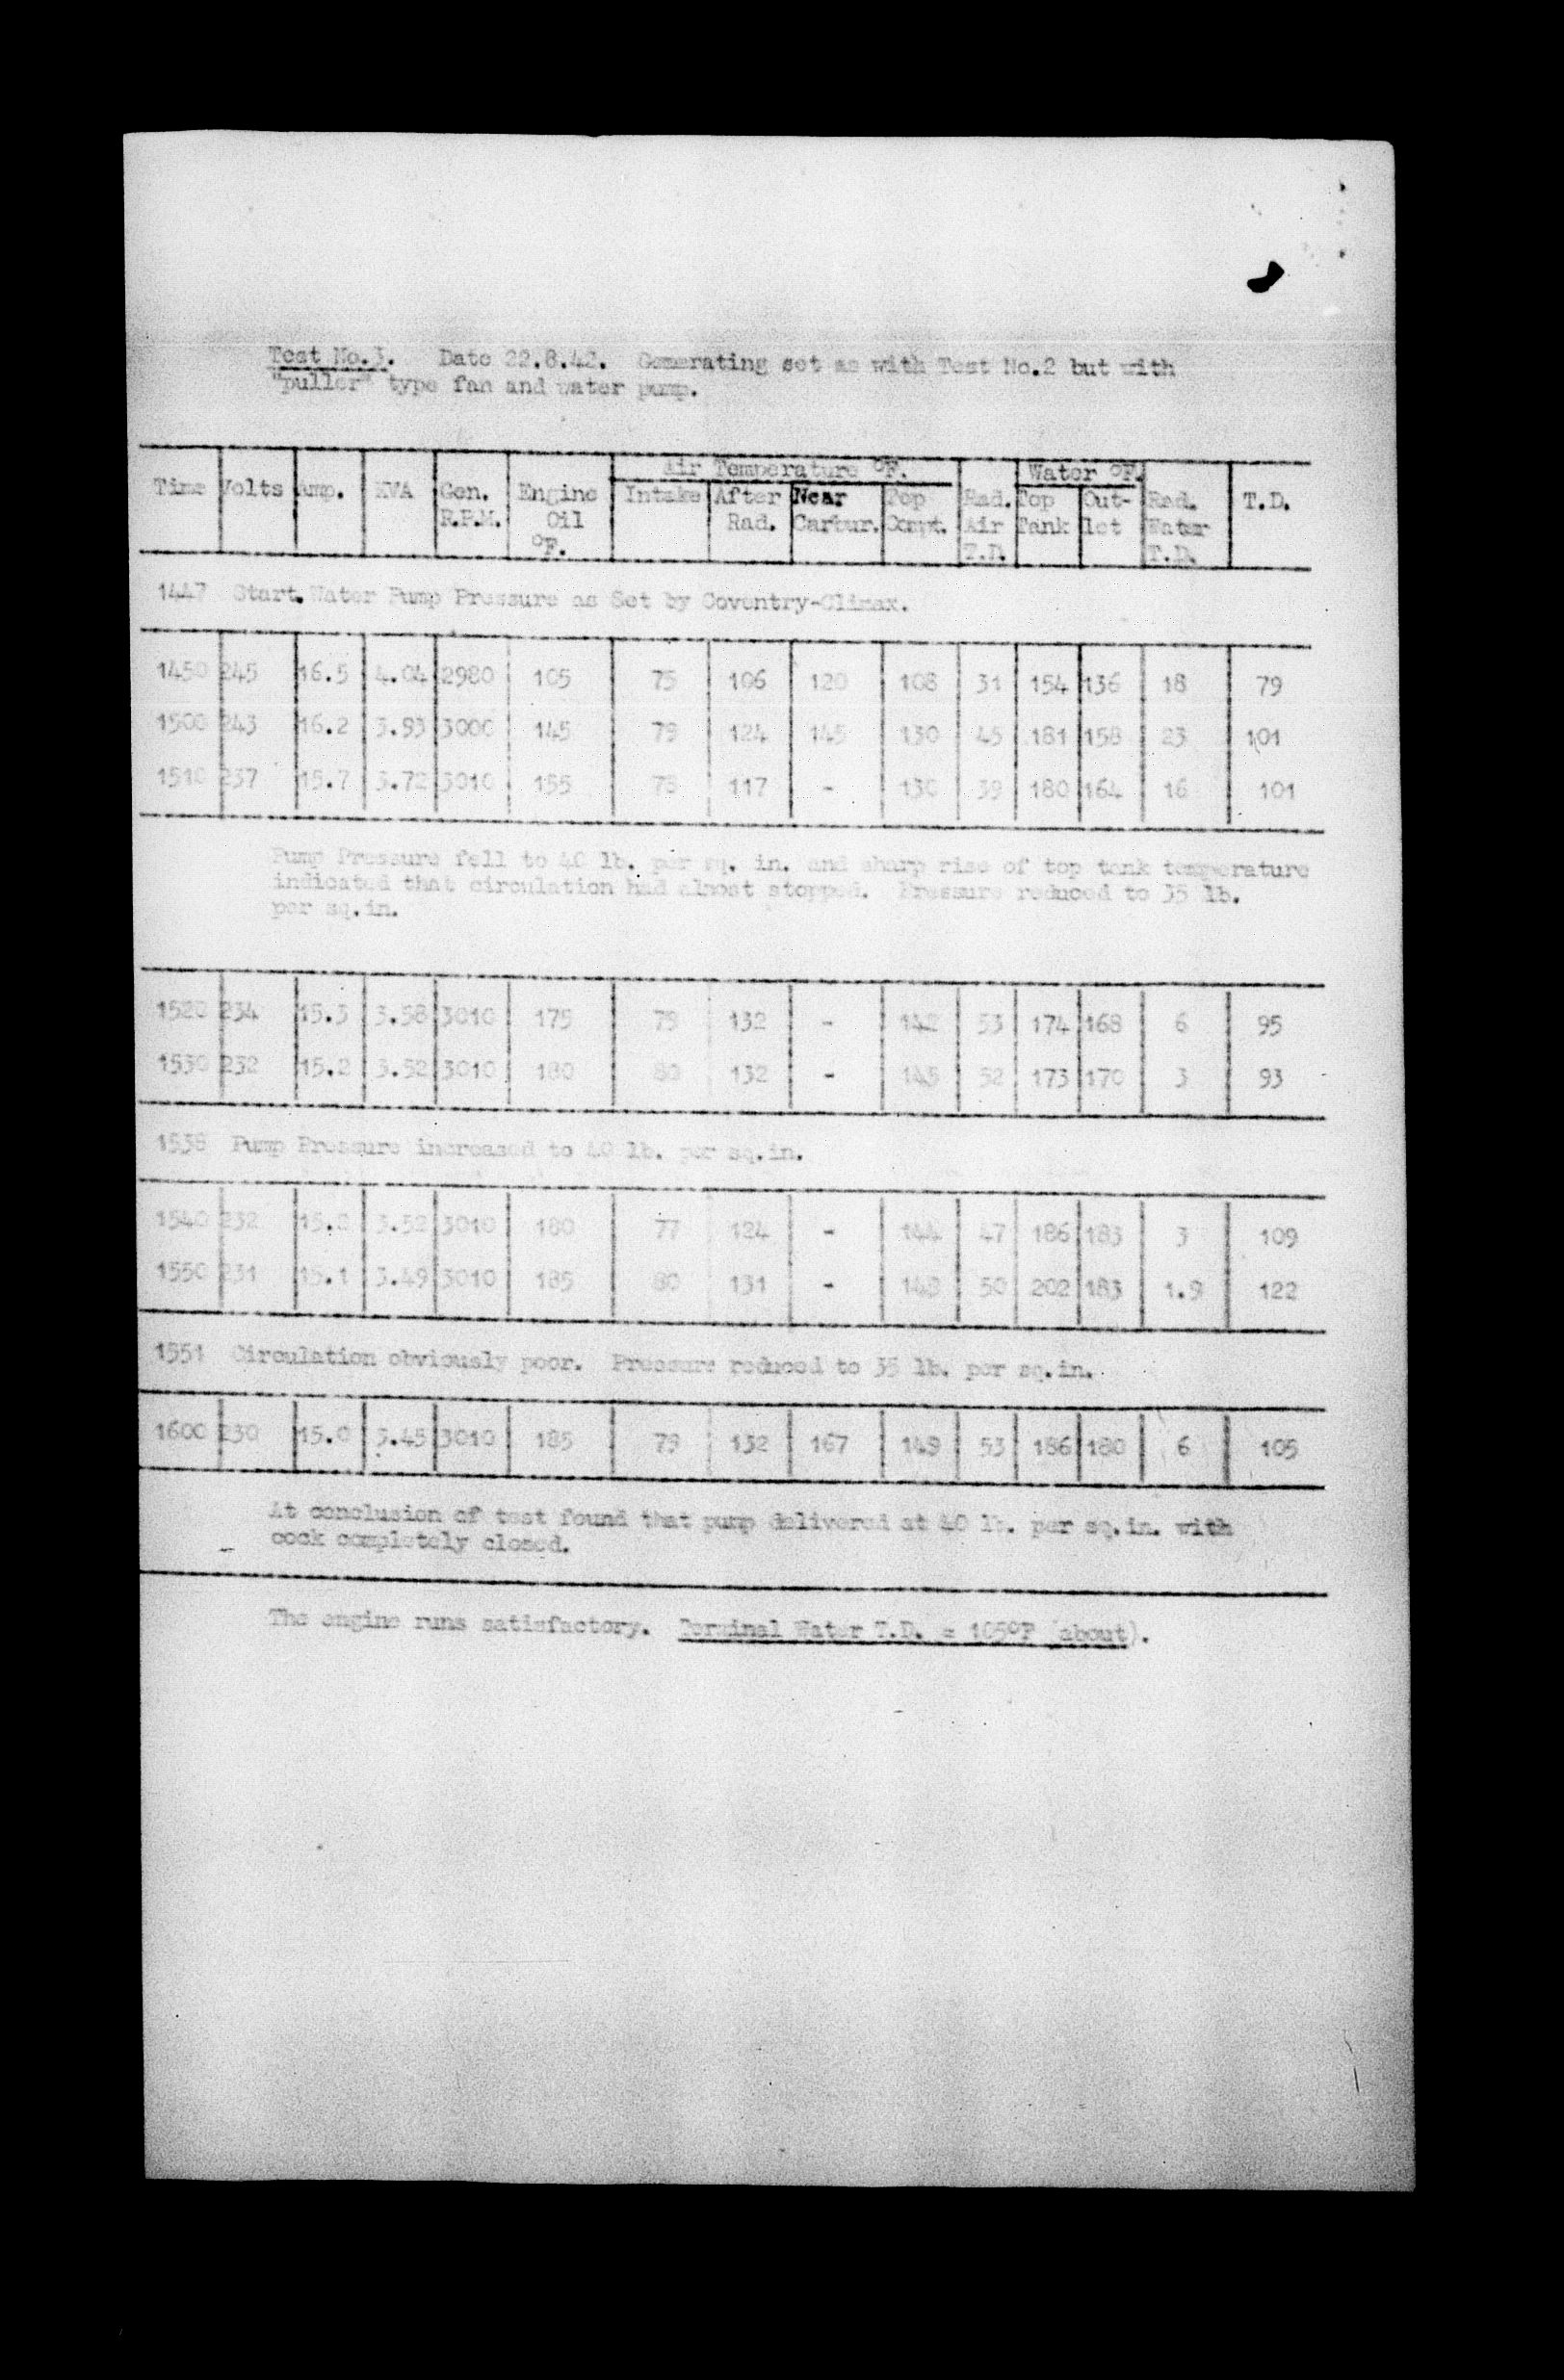 Test No.3. Date 22.8.42. Generating set as with Test No.2 but with
"puller" type fan and water pump.
Air Temperature °F. Water °F.
Time Volts Amp. KVA Gen. Engine Intake After Near Top Rad. Top Out- Rad. T.D.
R.P.M. Oil Rad. Carbur. Compt. Air Tank let Water
°F. T.D. T.D.
1447 Start. Water Pump Pressure as Set by Coventry-Climax.
1450 245 16.5 4.04 2980 105 75 106 120 108 31 154 136 18 79
1500 243 16.2 3.93 3000 145 79 124 145 130 45 181 158 23 101
1510 237 15.7 3.72 3010 155 78 117 - 130 39 180 164 16 101
Pump Pressure fell to 40 lb. per sq. in. and sharp rise of top tank temperature
indicated that circulation had almost stopped. Pressure reduced to 35 lb.
per sq.in.
1520 234 15.3 3.58 3010 175 79 132 - 142 53 174 168 6 95
1530 232 15.2 3.52 3010 180 80 132 - 145 52 173 170 3 93
1538 Pump Pressure increased to 40 lb. per sq.in.
1540 232 15.2 3.52 3010 180 77 124 - 144 47 186 183 3 109
1550 231 15.1 3.49 3010 185 80 131 - 148 50 202 183 1.9 122
1551 Circulation obviously poor. Pressure reduced to 35 lb. per sq.in.
1600 230 15.0 3.45 3010 185 79 132 167 149 53 186 180 6 105
At conclusion of test found that pump delivered at 40 lb. per sq.in. with
cock completely closed.
The engine runs satisfactory. Terminal Water T.D. = 105°F (about).